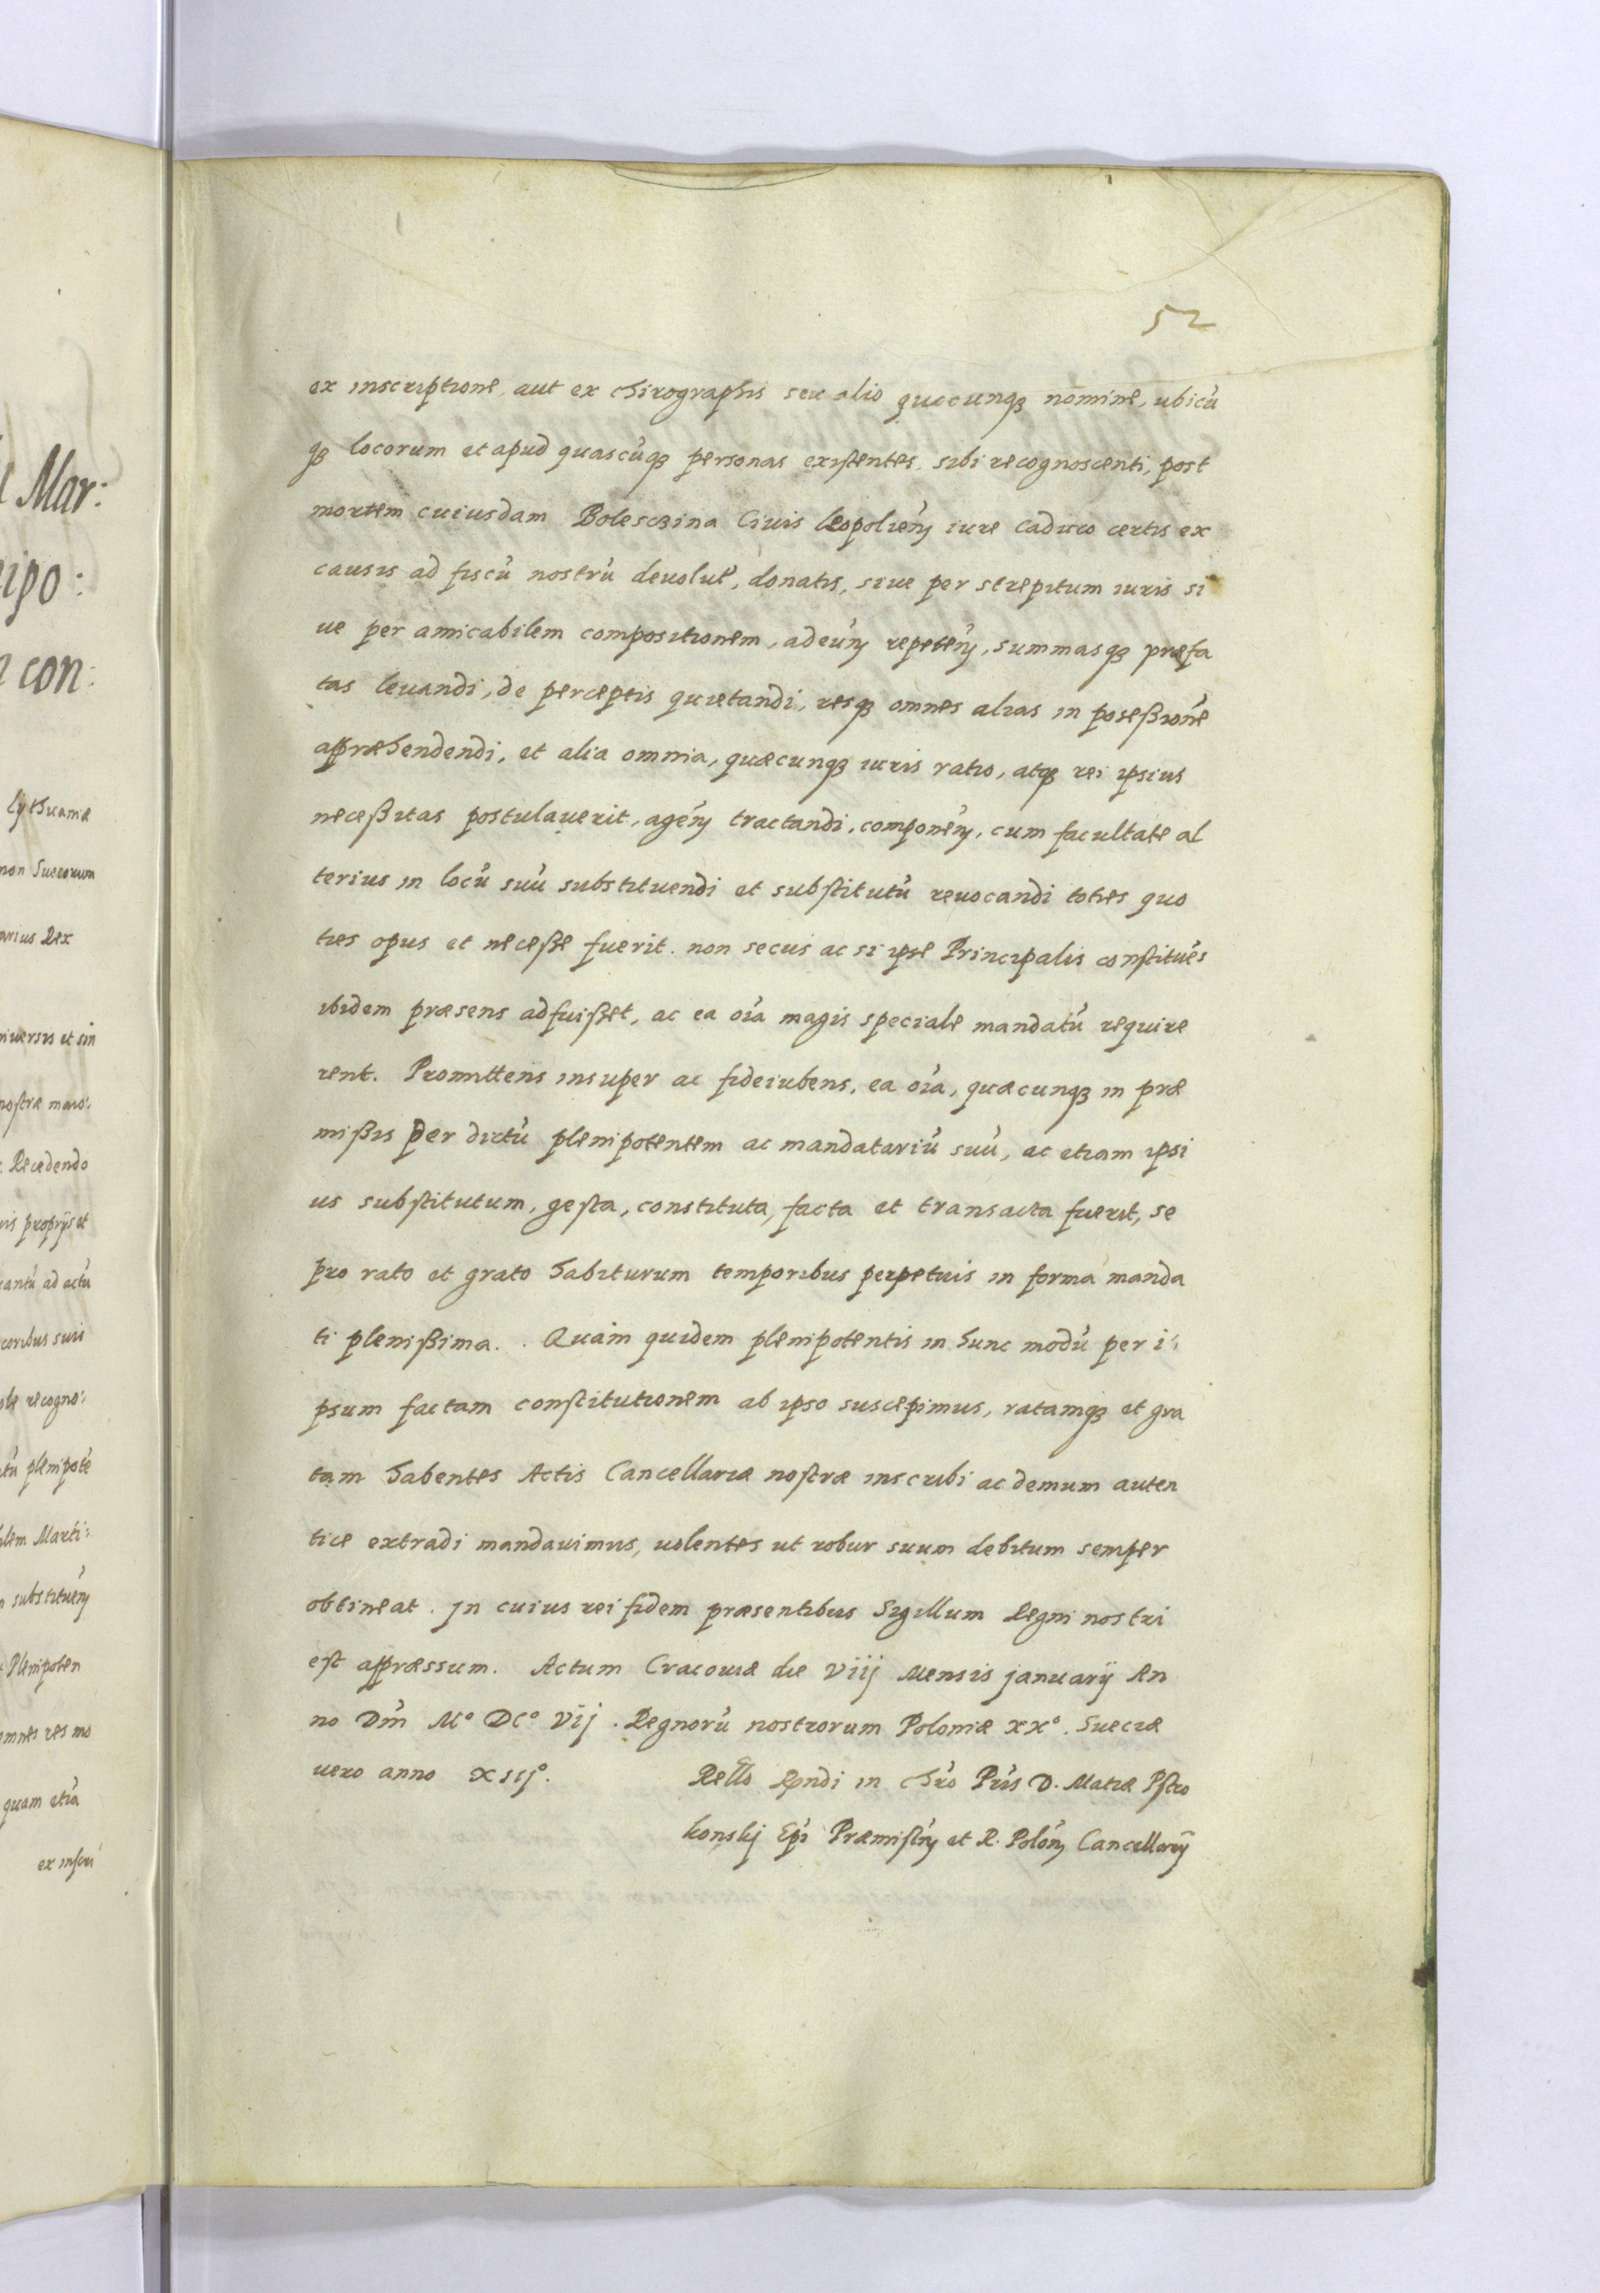 52
ex inscriptione aut ex chirographis seu alio quocunq₃ nomine, ubicū
q₃ locorum et apud quascūq₃ personas existentes sibi recognoscenti, post
mortem cuiusdam Bolesczina Civis Leopolień iure caduco certis ex
causis ad fiscū nostrū devolut̄, donatis, sive per strepitum iuris si
ve per amicabilem compositionem, adeuń repeteń, summasq₃ præfa
tas levandi, de perceptis quietandi, resq₃ omnes alias in poseßionē
appræhendendi, et alia omnia, quæcunq₃ iuris ratio, atq₃ rei ipsius
neceßitas postulaverit, ageń tractandi, componeń, cum facultate al
terius in locū suū substituendi et substitutū revocandi toties quo
ties opus et neceße fuerit. non secus ac si ipse Principalis constituēs
ibidem præsens adfuißet, ac ea oīa magis speciale mandatū require
rent. Promittens insuper ac fideiubens, ea oīa, quæcunq₃ in præ
mißis per dictū plenipotentem ac mandatariū suū, ac etiam ipsi
us substitutum, gesta, constituta, facta et transacta fuerit, se
pro rato et grato habiturum temporibus perpetuis in forma manda
ti plenißima. . Quam quidem plenipotentis in hunc modū per i:
psum factam constitutionem ab ipso suscepimus, ratamq₃ et gra
tam habentes Actis Cancellariæ nostræ inscribi ac demum auten
tice extradi mandavimus, volentes ut robur suum debitum semper
obtineat. In cuius rei fidem præsentibus Sigillum Regni nostri
est appræssum. Actum Cracoviæ die Viij Mensis januarij An
no Dnī M° DC° Vij. Regnorū nostrorum Poloniæ xx°. Sueciæ
vero anno xiij°.
Rello Rendi in Chro Pris D. Matiæ Pstro
konskj Epī Præmisliń et R. Poloń Cancellarij